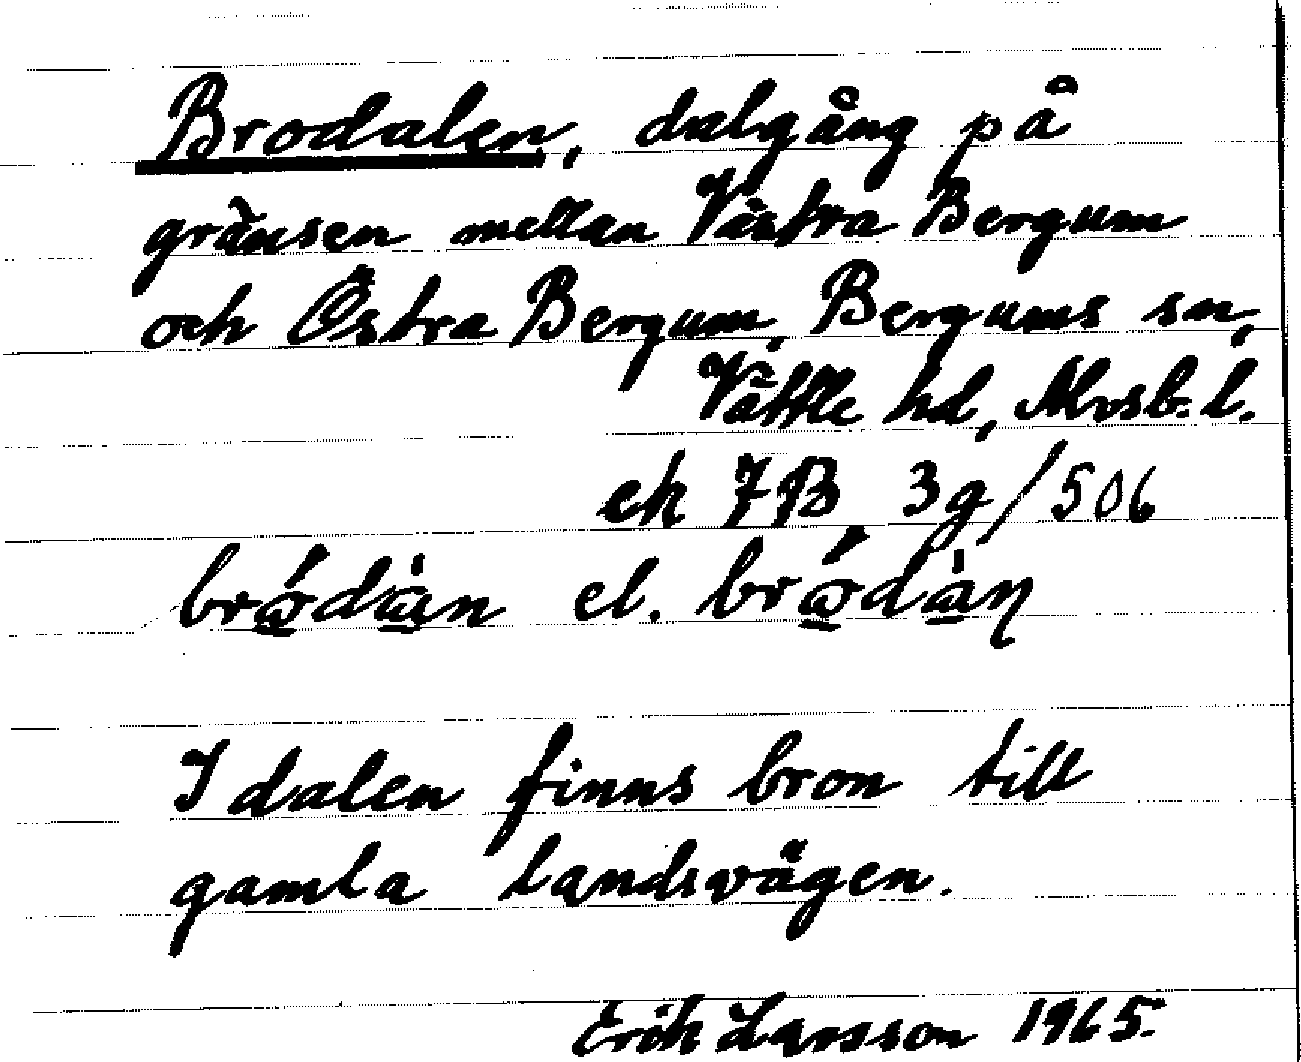 Brodalen, dalgång på
gränsen mellan Västra Bergum
och Östra Bergum, Bergums sn,
Vättle hd, Älvsb. l.
ek 7B 3g/506
el.
I dalen finns bron till
gamla landsvägen.
Erik Larsson 1965.